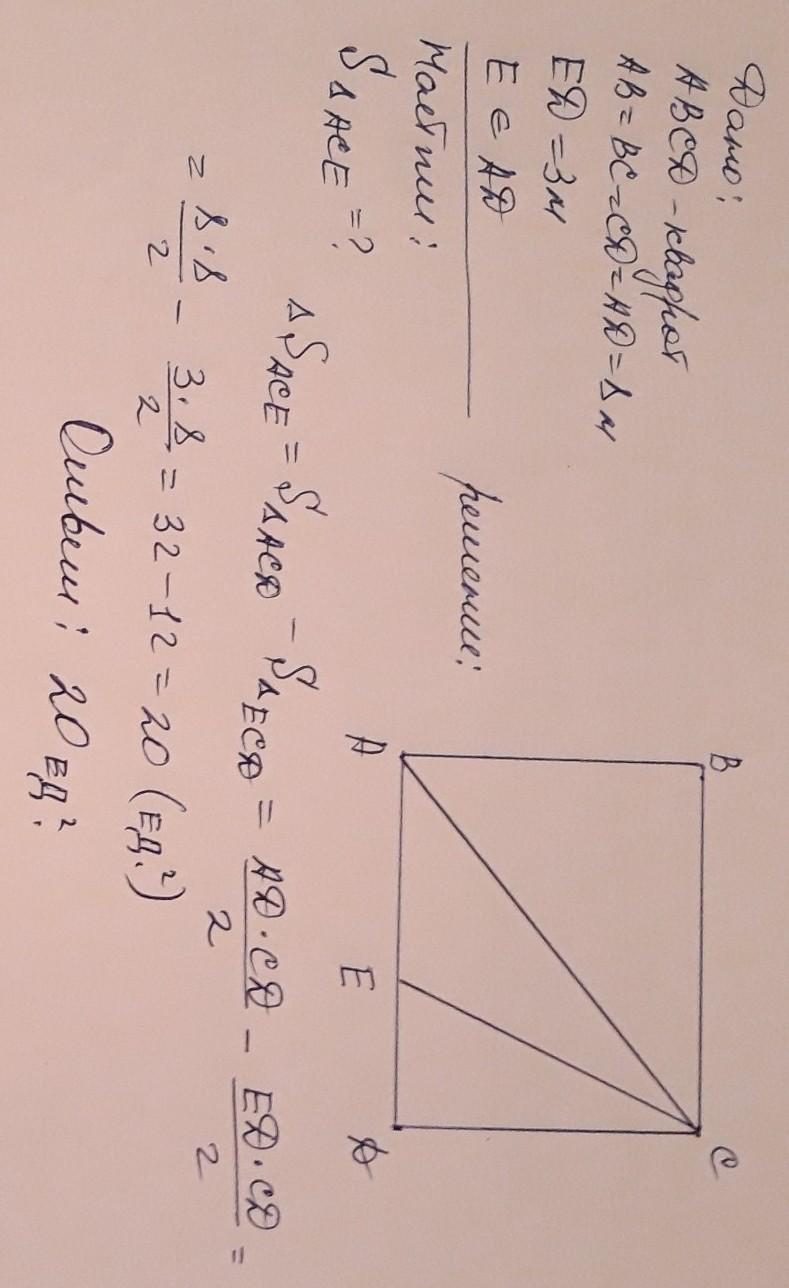 Дано:
ABCD - квадрат
AB = BC = CD = AD = 8 м
ED = 3 м
E ∈ AD
Найти:
S△ACE = ?
решение:
B
C
A
E
D
△SACE = S△ACD - S△ECD = AD·CD/2 - ED·CD/2 =
= 8·8/2 - 3·8/2 = 32 - 12 = 20 (ед.²)
Ответ: 20 ед.²